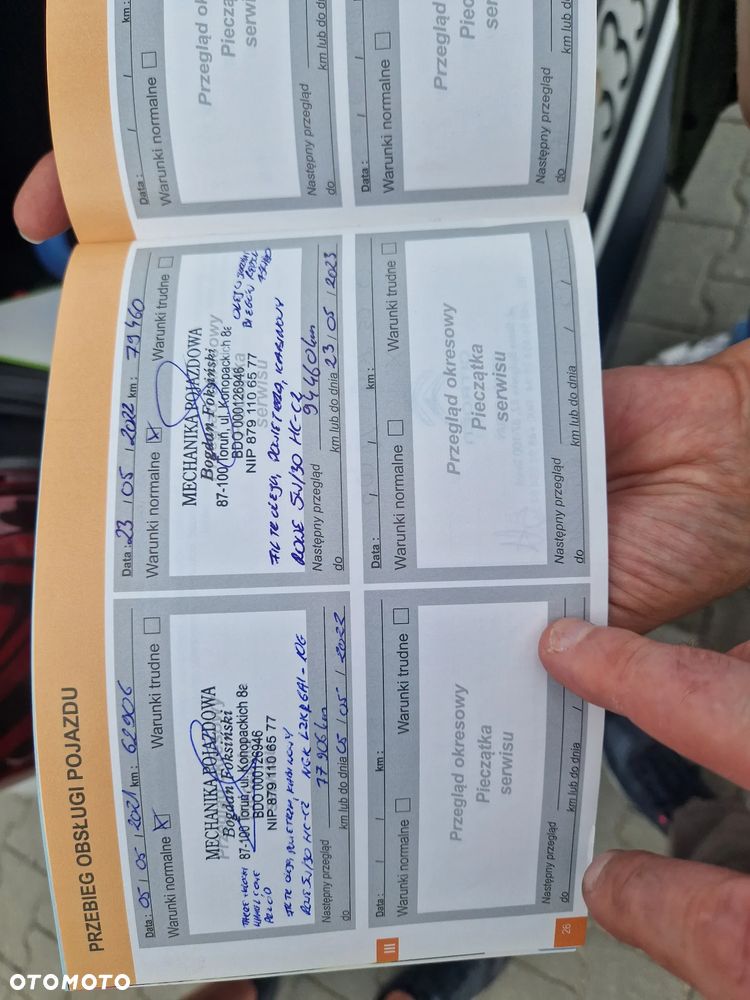 PRZEBIEG OBSŁUGI POJAZDU
Data : 05 / 05 / 2021 km : 62906
Warunki normalne Warunki trudne
MECHANIKA POJAZDOWA
Bogdan Foksiński
87-100 Toruń, ul. Konopackich 8e
BDO 000126946
NIP 879 110 65 77
ROWE 5W/30 HC-C2 NGK LZKR6AI-10G
Następny przegląd 77 906 km
do km lub do dnia 05 / 05 / 2022
Data : 23 / 05 / 2022 km : 79460
Warunki normalne Warunki trudne
MECHANIKA POJAZDOWA
Bogdan Foksiński
87-100 Toruń, ul. Konopackich 8e
BDO 000126946
NIP 879 110 65 77
serwisu
ROWE 5W/30 HC-C2
Następny przegląd 94460 km
do km lub do dnia 23 / 05 / 2023
Data : / / km :
Warunki normalne
Przegląd ok
Pieczą
serwi
Następny przegląd
do km lub do d
III
/ / km :
Warunki normalne Warunki trudne
Przegląd okresowy
Pieczątka
serwisu
Następny przegląd
do km lub do dnia /
Data : / / km :
Warunki normalne Warunki trudne
Przegląd okresowy
Pieczątka
serwisu
Następny przegląd
do km lub do dnia / /
Data : /
Warunki normalne
Przegląd
Piec
ser
Następny przegląd
do km lub do
26
OTOMOTO